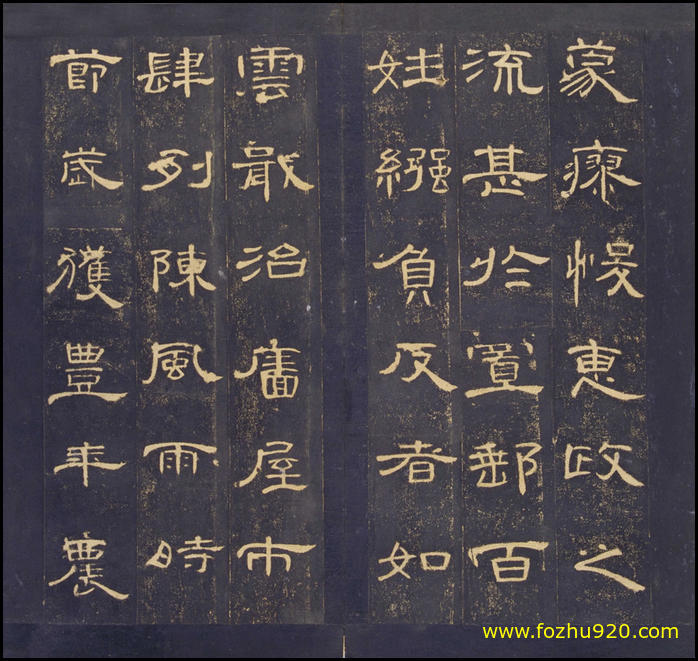 蒙瘳悛惠政之
流甚於置郵百
姓繈負反者如
雲戢治廧屋市
肆列陳風雨時
節歲獲豐年農
www.fozhu920.com